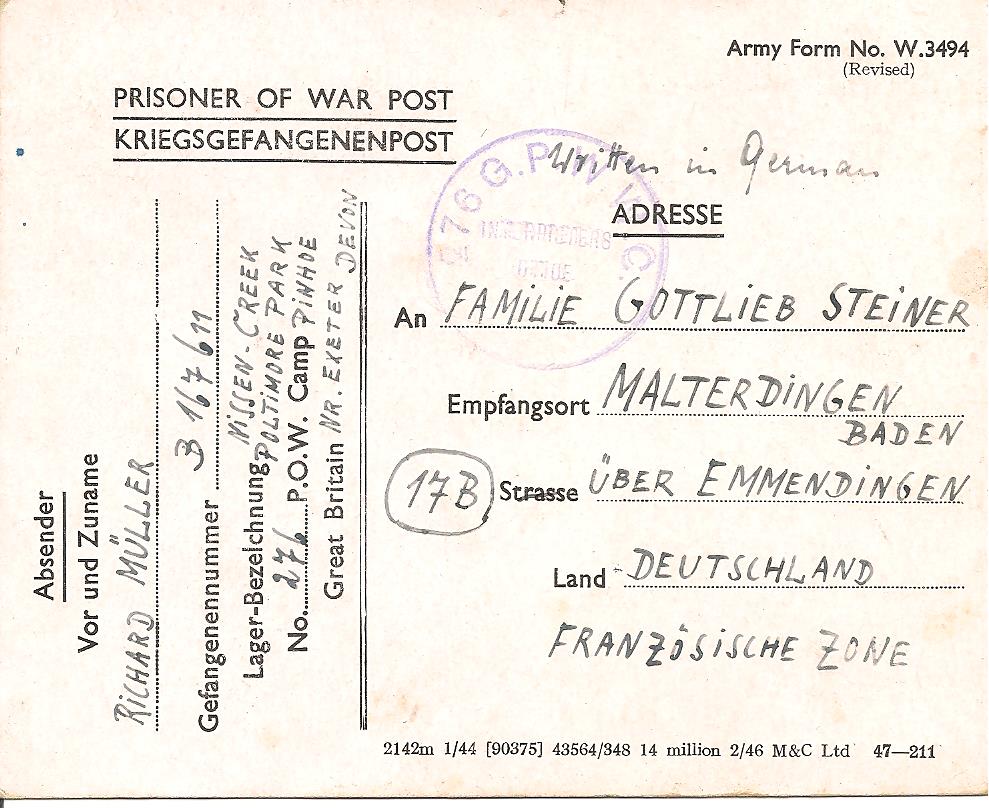 Army Form No. W.3494
(Revised)
PRISONER OF WAR POST
KRIEGSGEFANGENENPOST
Written in German
276 G.P.W W.C.
INTERPRETERS
ADRESSE
An FAMILIE GOTTLIEB STEINER
Empfangsort MALTERDINGEN
BADEN
17B Strasse ÜBER EMMENDINGEN
Land DEUTSCHLAND
FRANZÖSISCHE ZONE
Absender
Vor und Zuname
RICHARD MÜLLER
Gefangenennummer B 167611
Lager-Bezeichnung NISSEN-CREEK
POLTIMORE PARK
No. 276 P.O.W. Camp PINHOE
Great Britain NR. EXETER DEVON
2142m 1/44 [90375] 43564/348 14 million 2/46 M&C Ltd 47—211